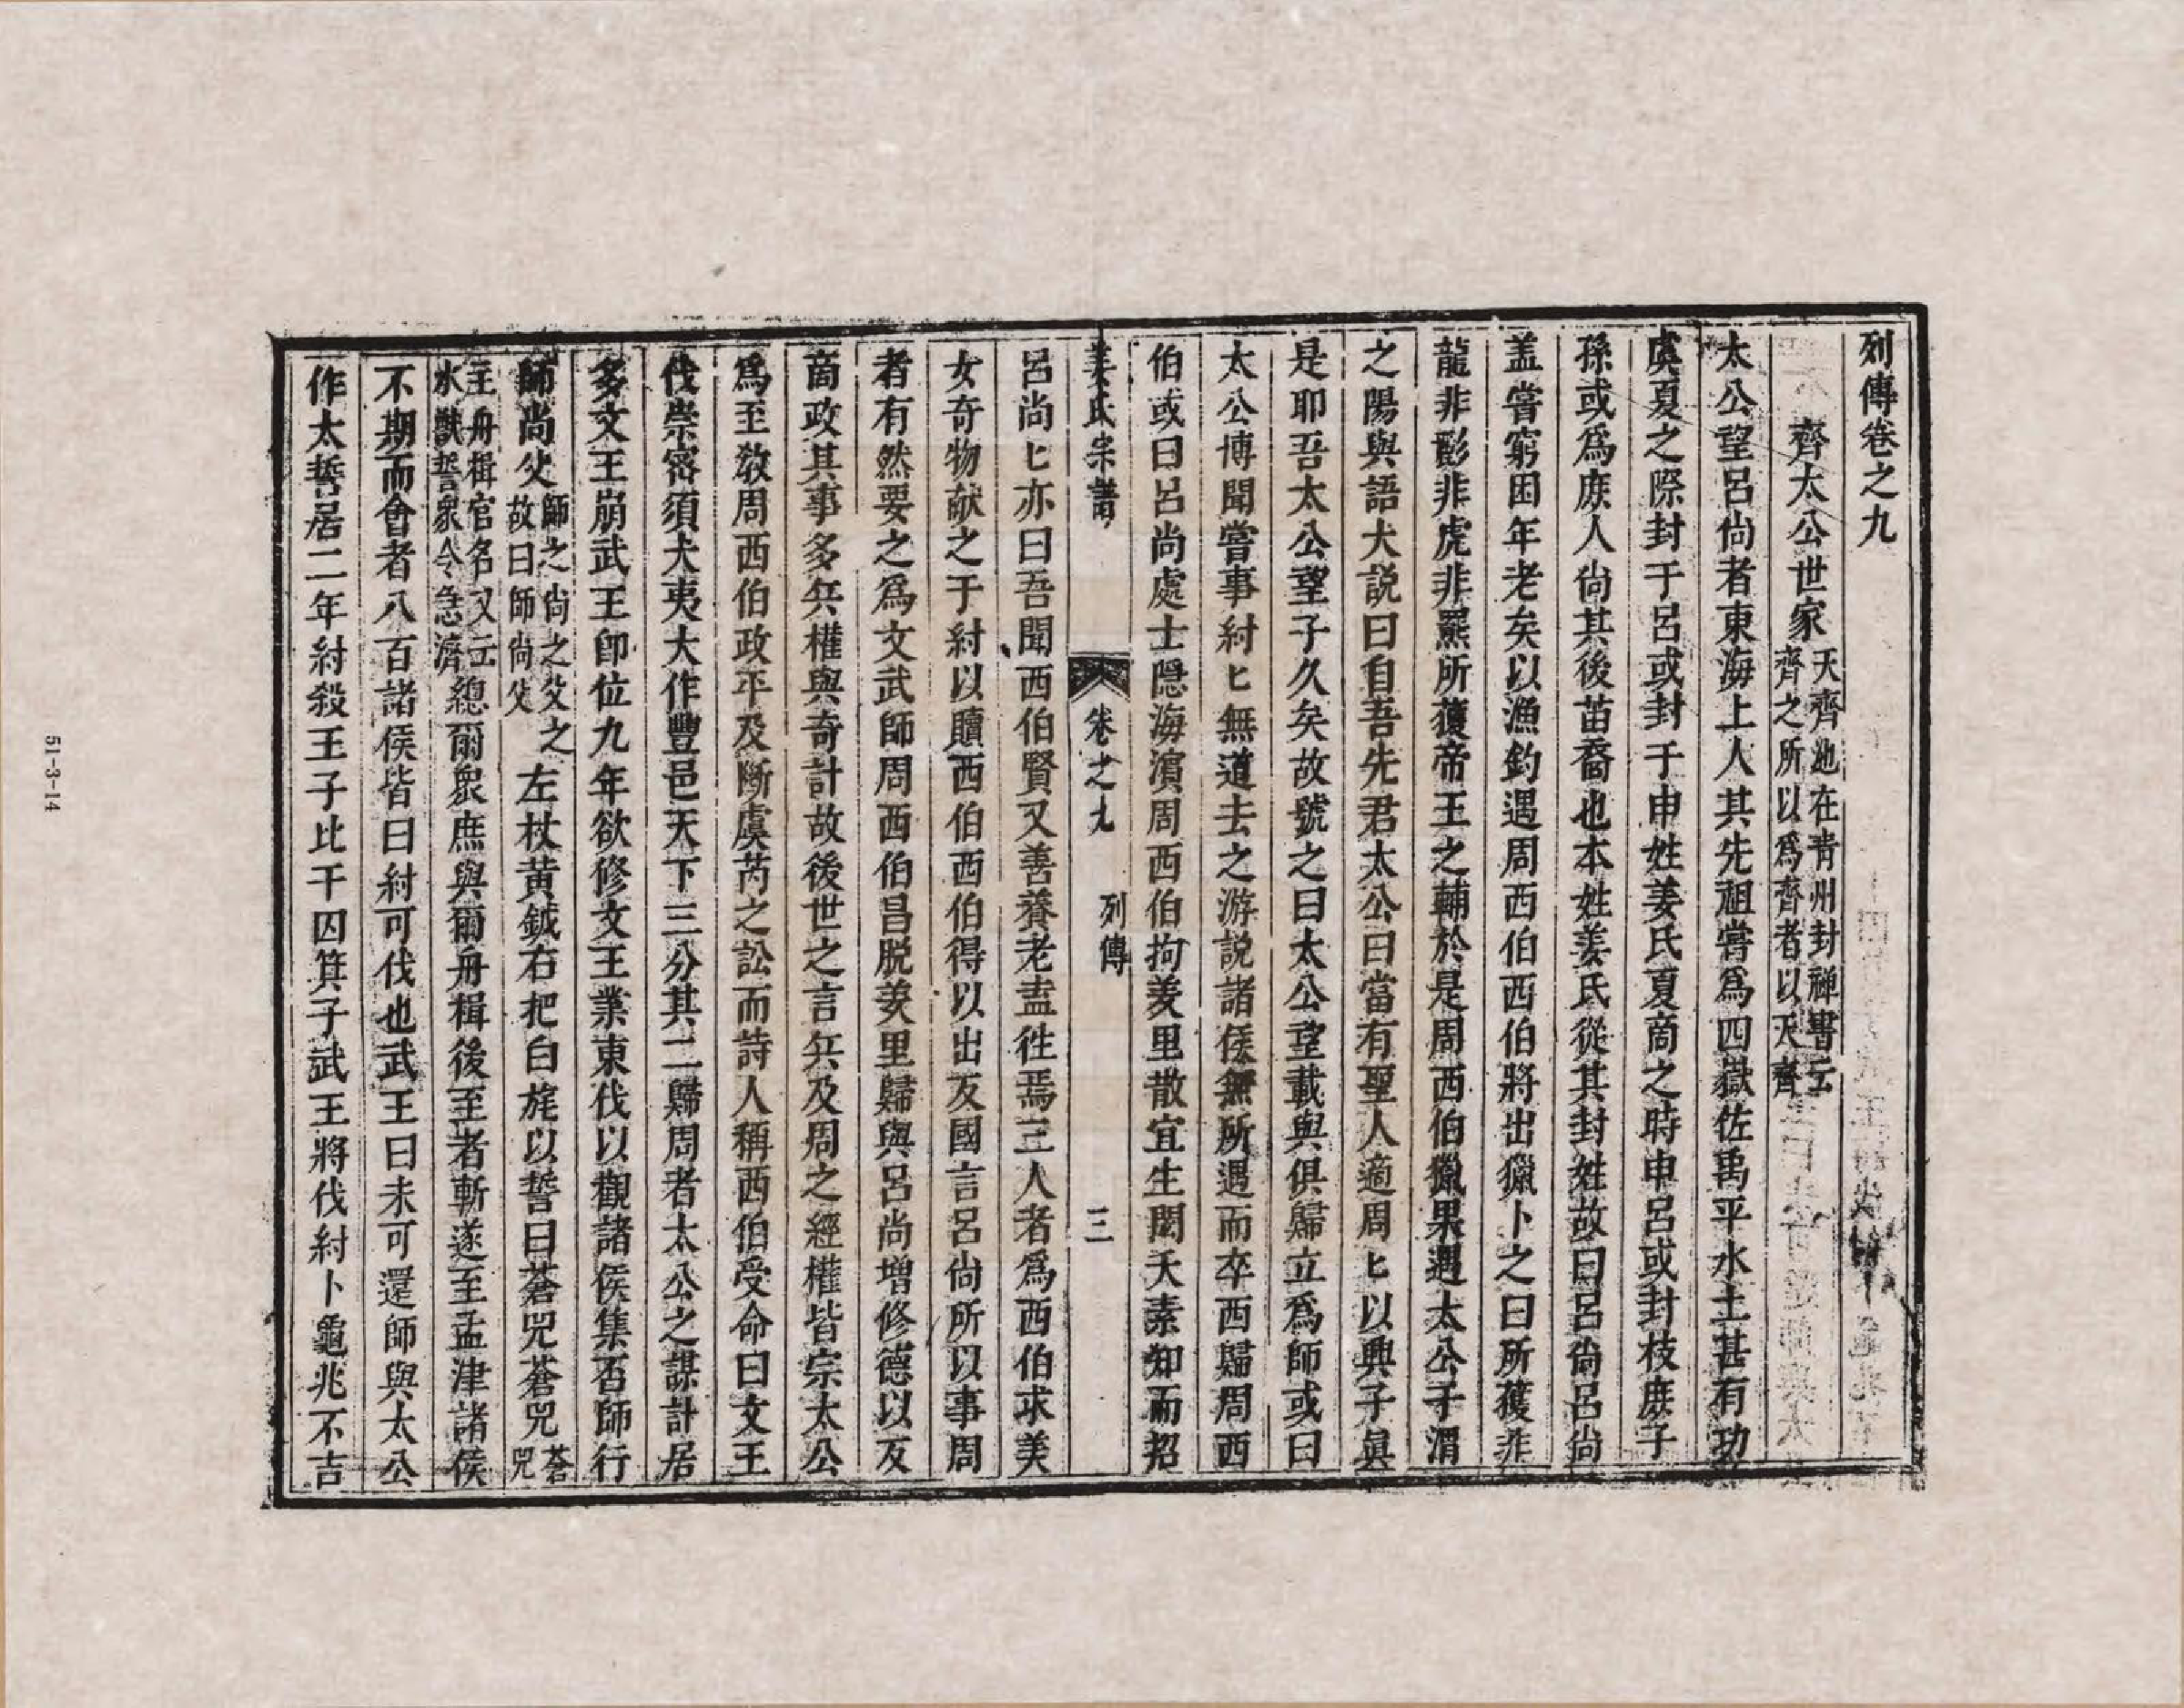 列傳卷之九
齊太公世家 天齊池在青州封禅書云齊之所以爲齊者以天齊
太公望呂尚者東海上人其先祖嘗爲四嶽佐禹平水土甚有功
虞夏之際封于呂或封于申姓姜氏夏商之時申呂或封枝庶子
孫或爲庶人尚其後苗裔也本姓姜氏從其封姓故曰呂尚呂尚
盖嘗窮困年老矣以漁釣遇周西伯西伯將出獵卜之曰所獲非
龍非彨非虎非羆所獲帝王之輔於是周西伯獵果遇太公于渭
之陽與語大説曰自吾先君太公曰當有聖人適周匕以興子眞
是耶吾太公望子久矣故號之曰太公望載與俱歸立爲師或曰
太公博聞嘗事紂匕無道去之游説諸侯無所遇而卒西歸周西
伯或曰呂尚處士隠海濱周西伯拘羑里散宜生閎夭素知而招
姜氏宗譜 卷之九 列傳 三
呂尚匕亦曰吾聞西伯賢又善養老盍徃焉三人者爲西伯求美
女奇物献之于紂以贖西伯西伯得以出反國言呂尚所以事周
者有然要之爲文武師周西伯昌脱羑里歸與呂尚増修德以反
商政其事多兵權與奇計故後世之言兵及周之經權皆宗太公
爲至敎周西伯政平及断虞芮之訟而詩人稱西伯受命曰文王
伐崇密須犬夷大作豐邑天下三分其二歸周者太公之謀計居
多文王崩武王卽位九年欲修文王業東伐以觀諸侯集否師行
師尚父 師之尚之父之故曰師尚父 左杖黄鉞右把白旄以誓曰蒼兕蒼兕 蒼兕
主舟楫官名又云水獸誓衆令急濟 總爾衆庶與爾舟楫後至者斬遂至孟津諸侯
不期而會者八百諸侯皆曰紂可伐也武王曰未可還師與太公
作太誓居二年紂殺王子比干囚箕子武王將伐紂卜龜兆不吉
51-3-14